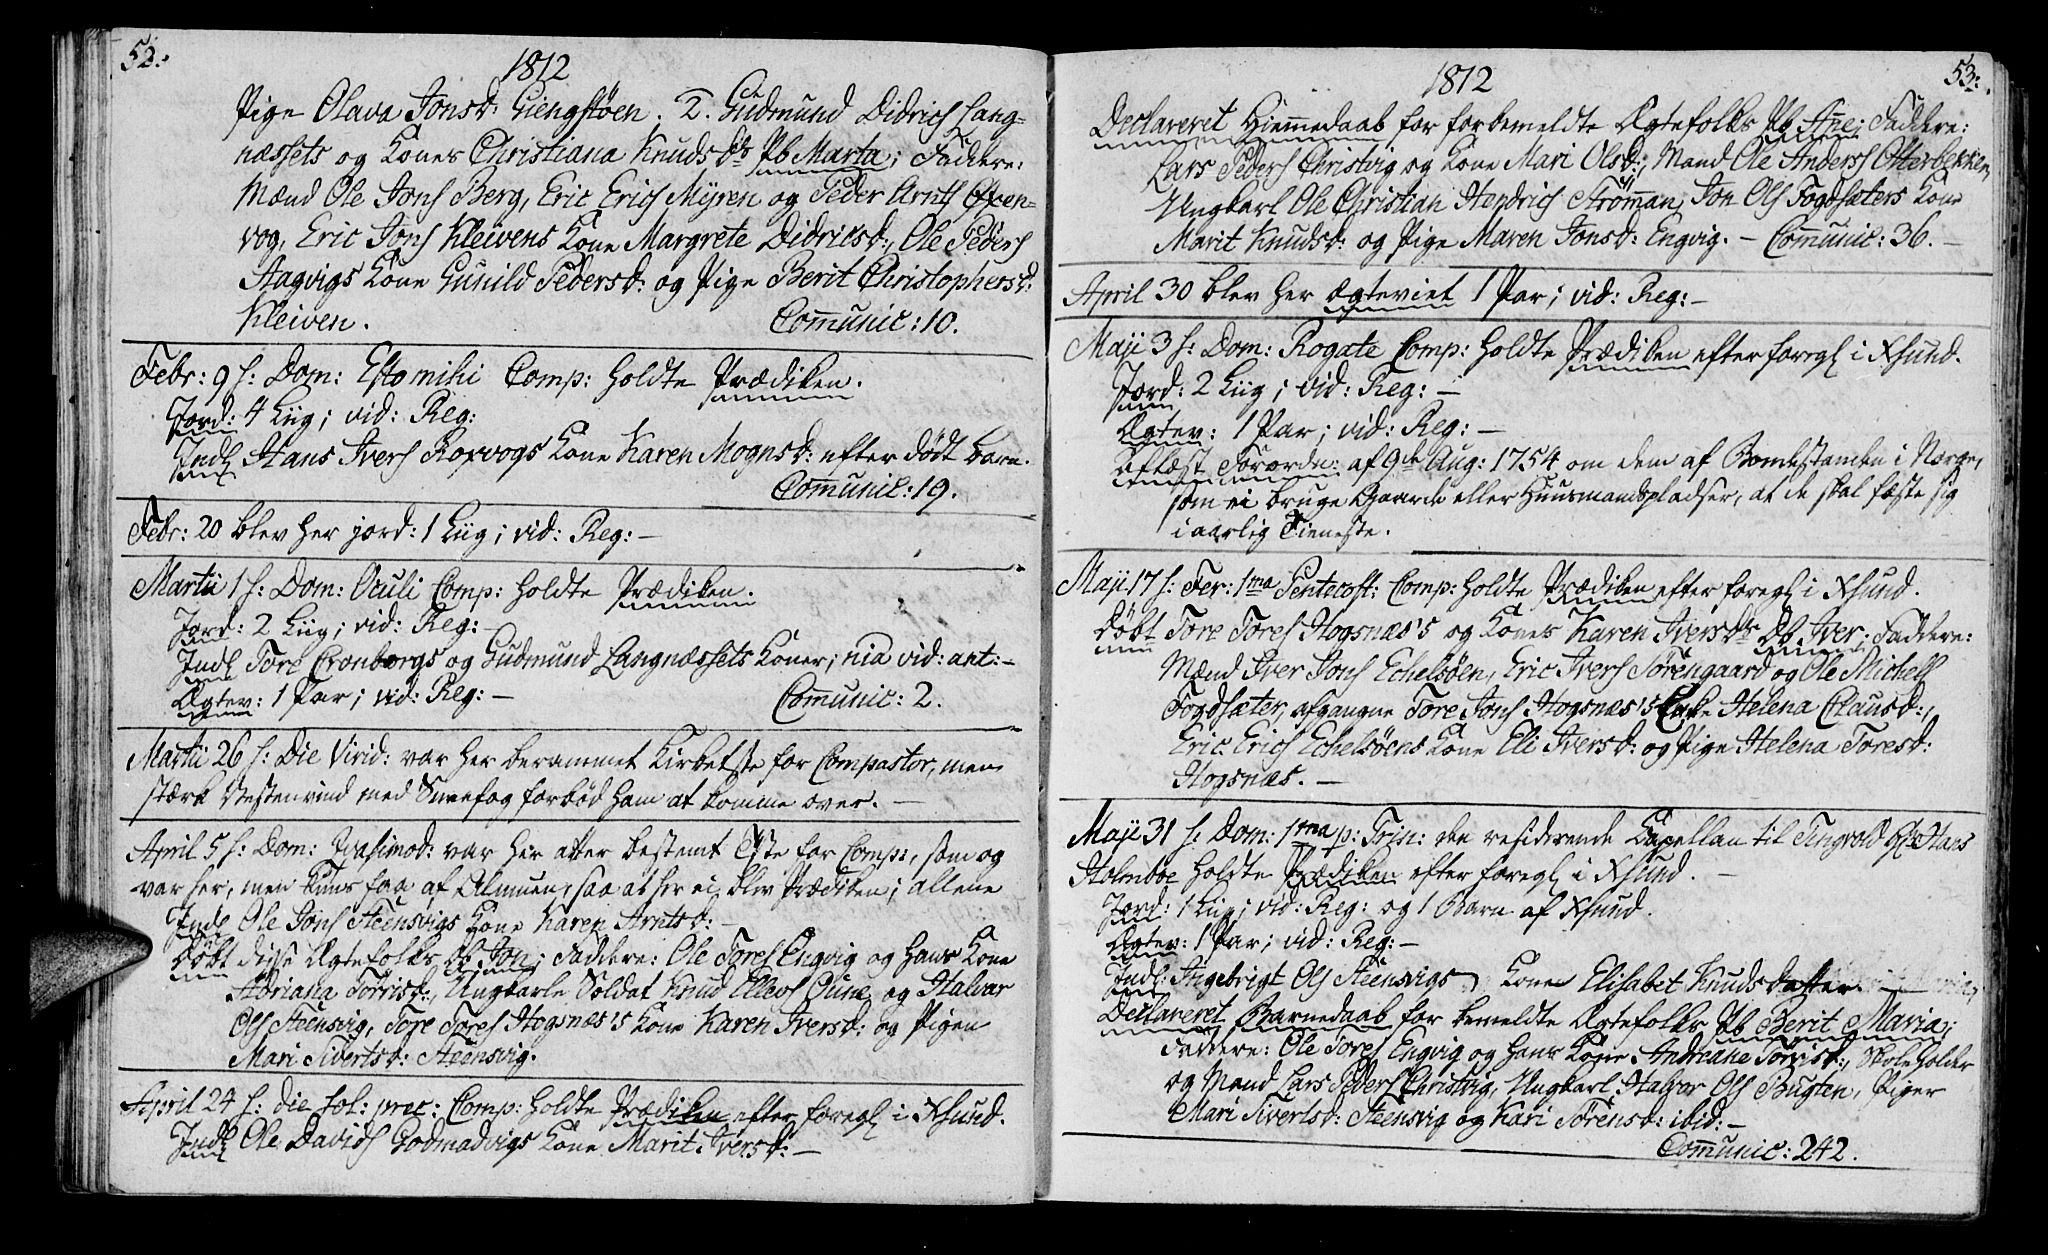 52.
1812
Pige Olava Jonsd: Giengstöen. 2. Gudmund Didrichs Lang-
næssets og Kones Christiana Knudsdr Pb Marta; Faddere:
Mænd Ole Jons Berg, Eric Erics Myren og Peder Arnts Oxen-
vog, Eric Jons Kleivens Kone Margrete Didricsd:, Ole Peders
Aagvigs Kone Gunild Pedersd: og Pige Berit Christophersd:
Kleiven. Communic: 10.
Febr: 9 s: Dom: Esto mihi Comp: holdte Prædiken.
Jord: 4 Liig; vid: Reg:
Indl Hans Ivers Roxvogs Kone Karen Mognsd: efter dødt Barn.
Communic: 19.
Febr: 20 blev her jord: 1 Liig; vid: Reg: —
Martii 1 s: Dom: Oculi Comp: holdte Prædiken.
Jord: 2 Liig; vid: Reg: —
Indl Tore Cronborgs og Gudmund Langnæssets Koner; nia vid: ant: —
Ægtev: 1 Par; vid: Reg: — Communic: 2.
Martii 26 s: Die Virid: var her berammet Kirketste for Compastor, men
stærk Vestenvind med Sneefog forbød ham at komme over. —
April 5 s: Dom: Qvasimod: var her atter bestemt Tste for Comp:, som og
var her, men kuns faa af Almuen, saa at her ei blev Prædiken; allene
Indl Ole Jons Steensvigs Kone Karen Arntsd: —
Döbt disse Ægtefolks Db Jon; Faddere: Ole Tores Engvig og hans Kone
Adriana Torrisd:, Ungkarle Soldat Knud Ellevs Oune og Halvar
Ols Steensvig, Tore Tores Hogsnæs's Kone Karen Iversd: og Pigen
Mari Sivertsd: Steensvig.
April 24 s: die sol: prec: Comp: holdte Prædiken efter foregl i Xsund.
Indl Ole Davids Godmadvigs Kone Marit Iversd: —
53:
1812
Declareret Hiemmedaab for forbemeldte Ægtefolks Pb Ane; Faddere:
Lars Peders Christvig og Kone Mari Olsd:, Mand Ole Anders Otterbekken,
Ungkarl Ole Christian Hendrich Strömman, Jon Ols Fogdsæters Kone
Marit Knudsd: og Pige Maren Jonsd: Engvig. — Communic: 36. —
April 30 blev her Ægteviet 1 Par; vid: Reg: —
Maji 3 s: Dom: Rogate Comp: holdte Prædiken efter foregl i Xsund.
Jord: 2 Liig; vid: Reg: —
Ægtev: 1 Par; vid: Reg: —
Oplæst Forordn: af 9de Aug: 1754 om dem af Bondestanden i Norge,
som ei bruge Gaarde eller Huusmandspladser, at de skal fæste sig
i aarlig Tieneste.
Maji 17 s: Fer: 1ma Pentecost: Comp: holdte Prædiken efter foregl i Xsund.
Döbt Tore Tores Hogsnæs's og Kones Karen Iversdr Db Iver; Faddere:
Mænd Iver Jons Echelsöen, Eric Ivers Sörengaard og Ole Michels
Fogdsæter, afgangne Tore Jons Hogsnæs's Enke Helena Clausd:,
Eric Erics Echelsöens Kone Eli Iversd: og Pige Helena Toresd:
Hogsnæs. —
Maji 31 s: Dom: 1ma p: Trin: den residerende Capellan til Tingvold Hans
Holmboe holdte Prædiken efter foregl i Xsund. —
Jord: 1 Liig; vid: Reg: og 1 Barn af Xsund.
Ægtev: 1 Par; vid: Reg: —
Indl: Ingebrigt Ols Steensvigs Kone Elisabet Knudsdatter
Declareret Barnedaab for bemeldte Ægtefolks Pb Berit Maria;
Faddere: Ole Tores Engvig og hans Kone Andreane Torrisd:, Skoleholder
og Mand Lars Peders Christvig, Ungkarl Halvor Ols Bugten, Piger
Mari Sivertsd: Steensvig og Kari Sörensd: ibid: —
Communic: 242.